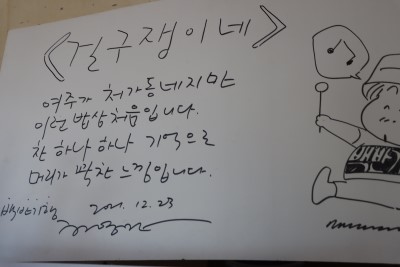 <걸구쟁이네>
여주가 처가동네지만
이런 밥상 처음입니다.
찬 하나 하나 기억으로
머리가 꽉찬 느낌입니다.
백반기행
2021. 12. 23